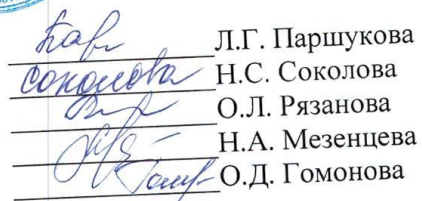 Л.Г. Паршукова
соколова Н.С. Соколова
О.Л. Рязанова
Н.А. Мезенцева
О.Д. Гомонова